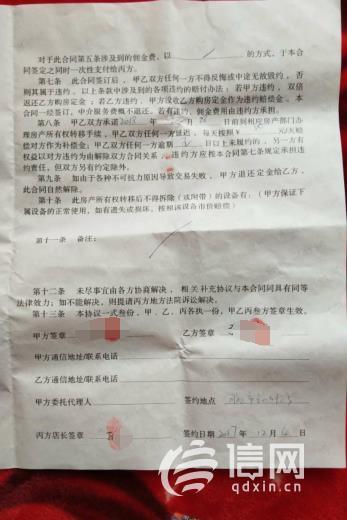 对于此合同第五条涉及到的佣金费，以 / 的方式，于本合
同签定之同时一次性支付给丙方。
第七条 此合同签订后，甲乙双方任何一方不得反悔或中途无故毁约，否
则其属于违约。以上条款中涉及的各项违约的赔付办法：若甲方违约，双倍
返还乙方购房定金；若乙方违约，甲方没收乙方购房定金作为违约赔偿金。本
合同一经签定，中介服务费概不退还。若有违约，
第八条 甲乙双方承诺 日前到相应房产部门办
理房产所有权转移手续，甲乙双方任何一方延迟，每天按照 元/天赔
偿对方作为补偿金；甲乙双方任何一方逾期 日以上未履约的，另一方有
权益以对方违约为由解除双方合同关系，违约方应根本合同第七条规定承担违
约责任，但双方另有约定除外。
第九条 如由于各种不可抗力原因导致交易失败，甲方退还定金给乙方，
此合同自然解除。
第十条 此房产所有权转移后不得拆除（或附带）的设备有：（甲方保证下
属设备的正常使用，如有遗失或损坏，按照该设备市价赔偿）
第十一条 备注：
第十二条 未尽事宜由各方协商解决，相关补充协议与本合同具有同等
法律效力；如不能解决，则提请丙方地方法院诉讼解决。
第十三条 本协议一式叁份，甲、乙、丙各执一份，甲乙丙叁方签章生效。
甲方签章 乙方签章
甲方通信地址/联系电话
乙方通信地址/联系电话
甲方委托代理人 签约地点
丙方店长签章 签约日期 2017年12月6日
信网
qdxin.cn